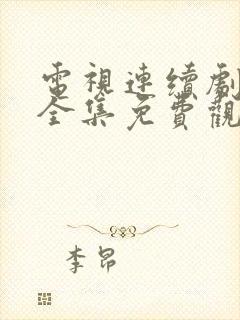 電視連續劇
全集免費觀
李昂